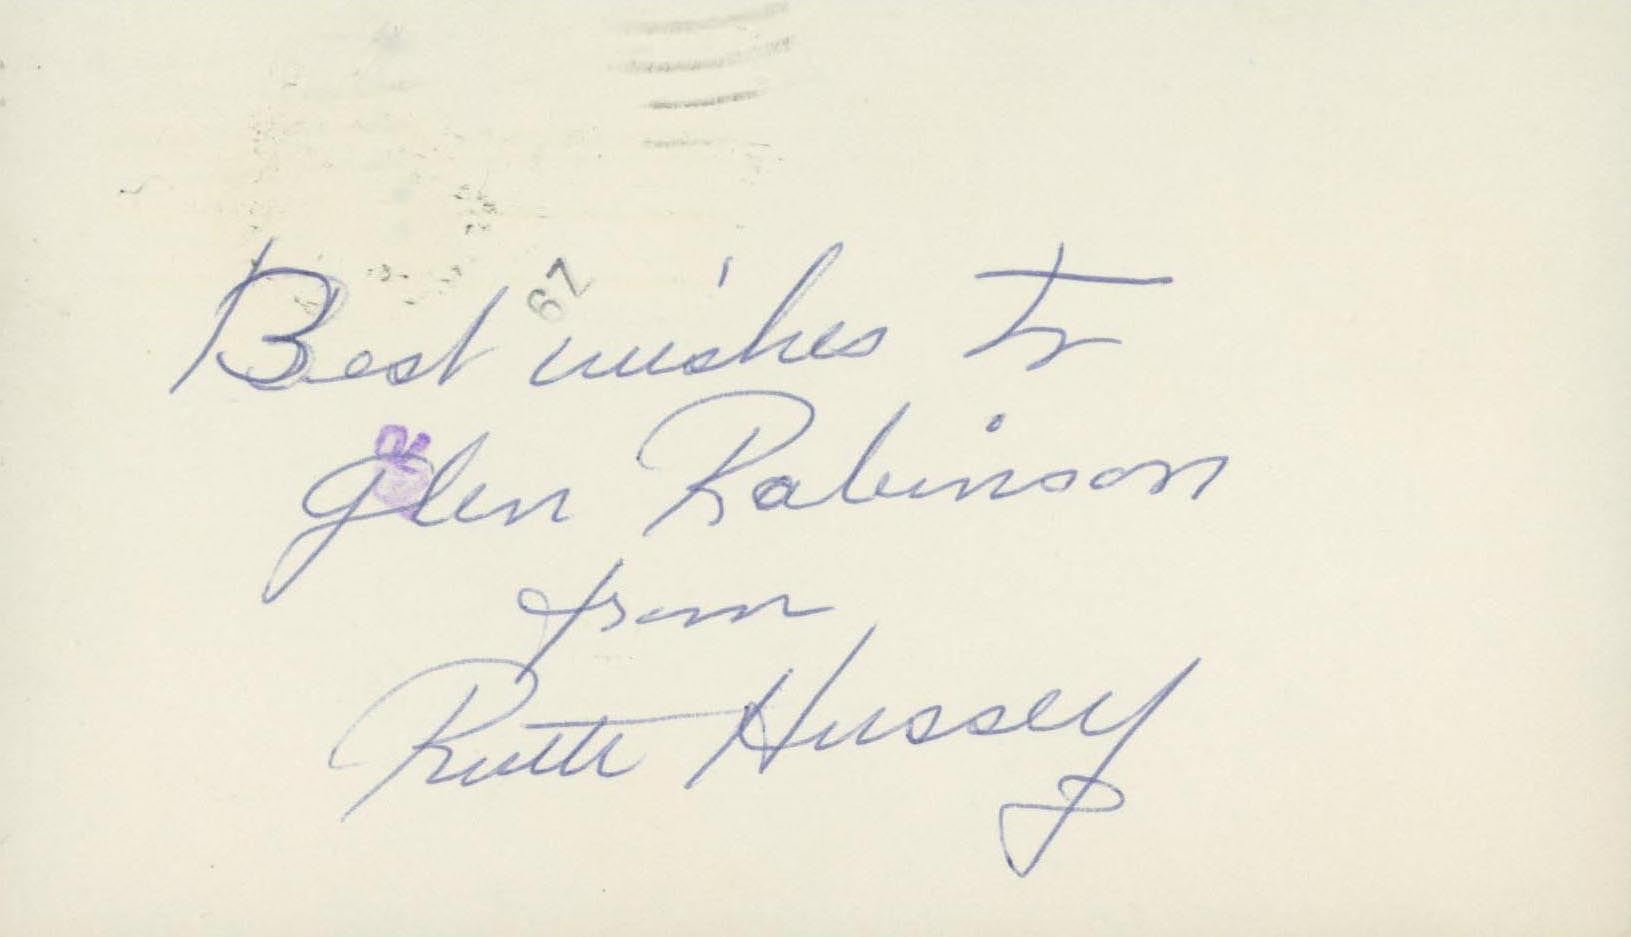 67
Best wishes to
Glen Robinson
from
Ruth Hussey